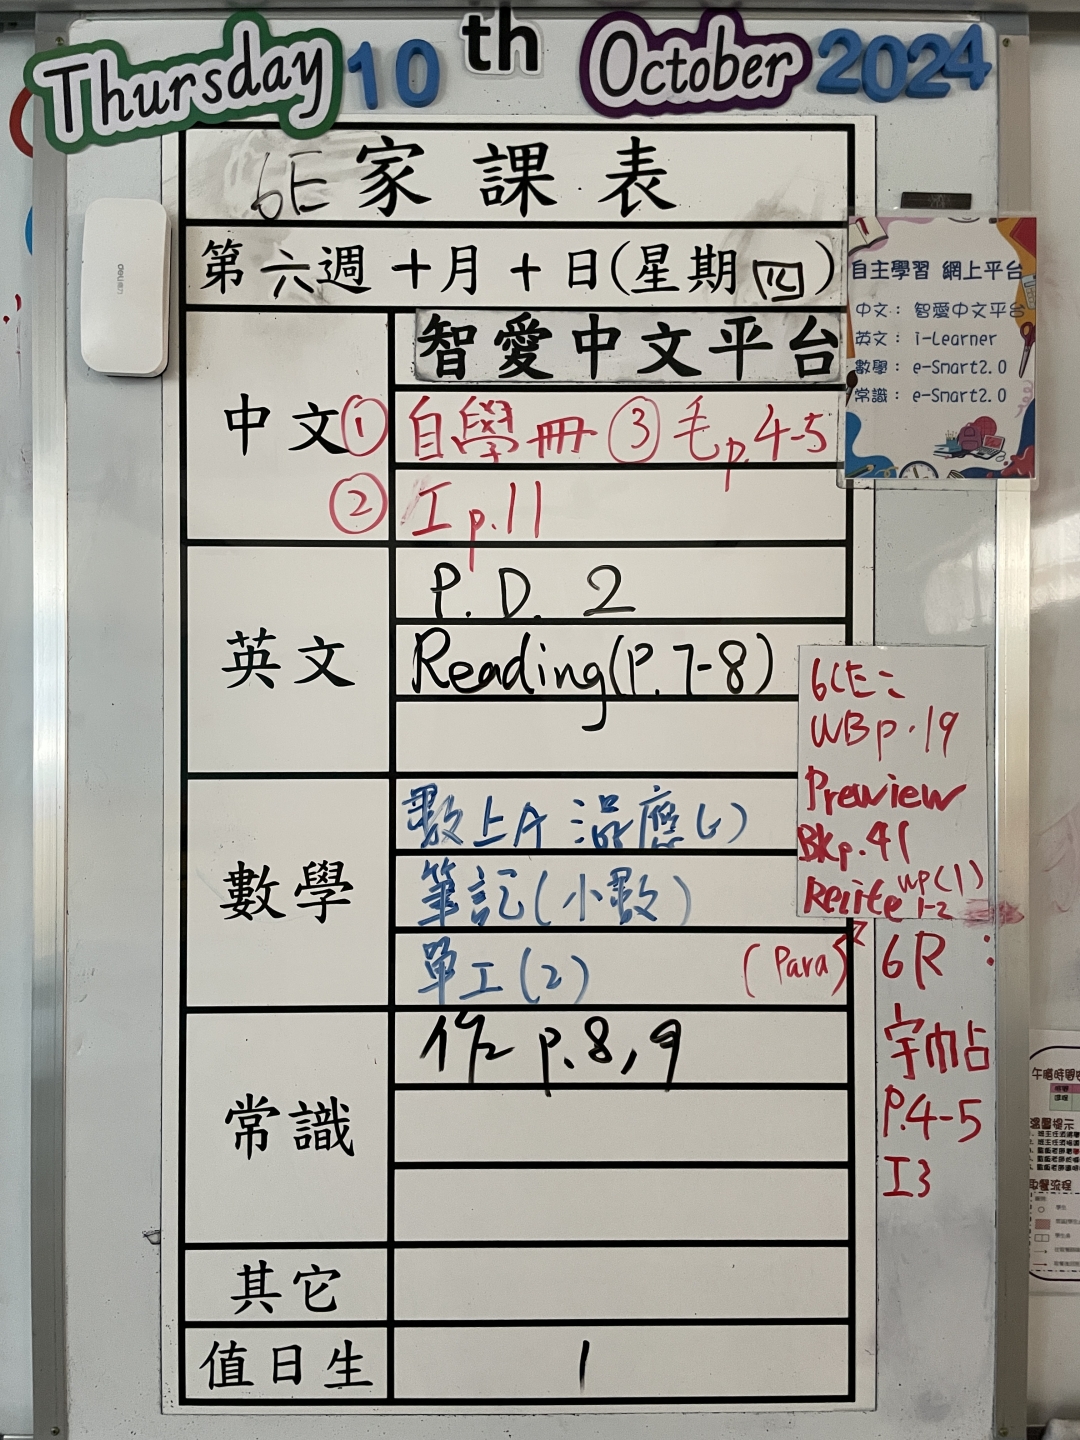 Thursday 10th October 2024
6E 家課表
第六週 十月十日(星期四)
自主學習 網上平台
中文： 智愛中文平台
英文： i-Learner
數學： e-Smart2.0
常識： e-Smart2.0
中文
智愛中文平台
① 自學冊 ③ 毛p.4-5
② 工p.11
英文
P.D. 2
Reading(P.7-8)
數學
數上A 混應(1)
筆記(小數)
單工(2)
(Para)
常識
作 p.8,9
其它
值日生
1
WB p.19
Preview
Bk p.41
Recite wp(1)
1-2
6R：
字帖
P.4-5
工3
午膳時間
溫馨提示
取餐流程